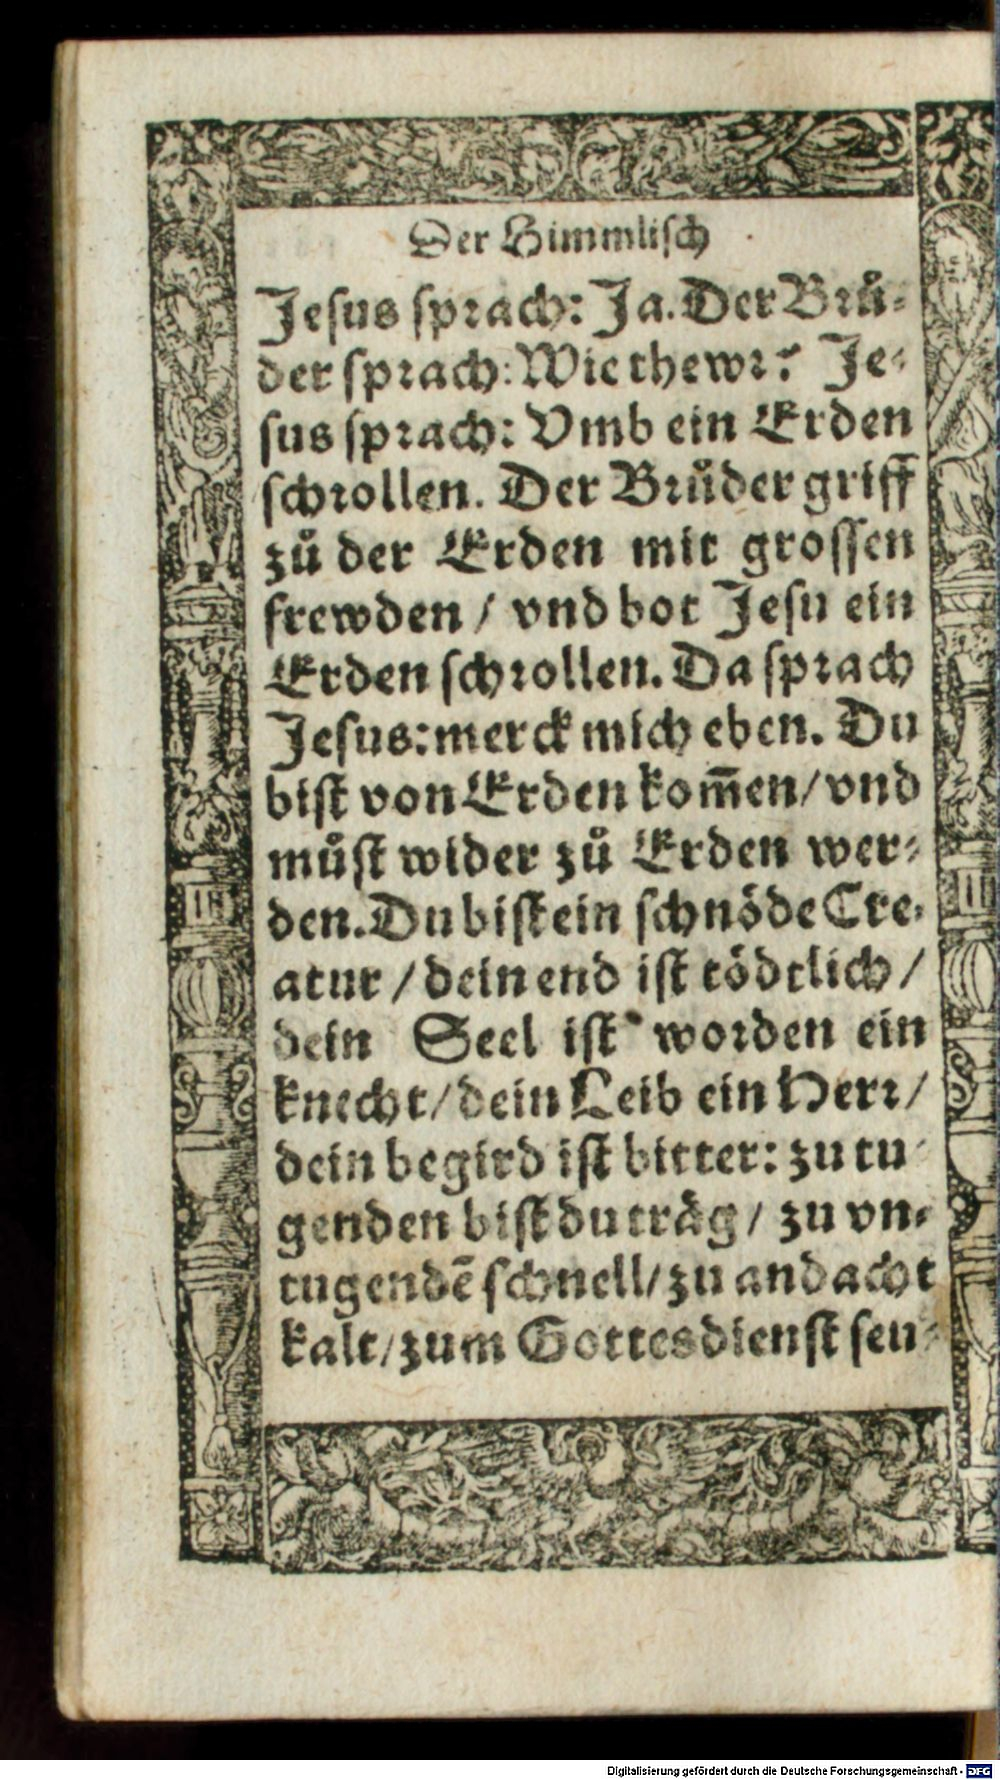 Der Himmlisch
Jesus sprach: Ja. Der Brů-
der sprach: Wie thewr? Je-
sus sprach: Vmb ein Erden
schrollen. Der Brůder griff
zů der Erden mit grossen
frewden / vnd bot Jesu ein
Erden schrollen. Da sprach
Jesus: merck mich eben. Du
bist von Erden kom̄en / vnd
můst wider zů Erden wer-
den. Du bist ein schnöde Cre-
atur / dein end ist tödtlich /
dein Seel ist worden ein
knecht / dein Leib ein Herr /
dein begird ist bitter: zu tu-
genden bist du träg / zu vn-
tugendē schnell / zu andacht
kalt / zum Gottesdienst seu-
Digitalisierung gefördert durch die Deutsche Forschungsgemeinschaft - DFG